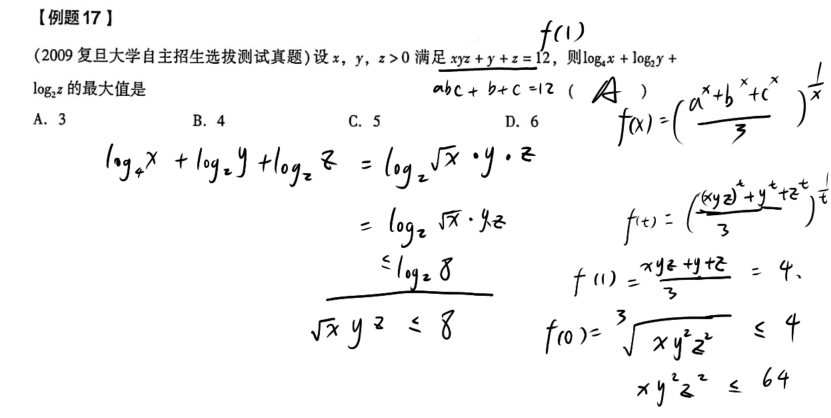 【例题17】
(2009 复旦大学自主招生选拔测试真题)设 x，y，z>0 满足 xyz+y+z=12，则log₄x+log₂y+
log₂z 的最大值是 ( A )
f(1)
abc + b+c =12
A. 3 B. 4 C. 5 D. 6
f(x)=((a^x+b^x+c^x)/3)^(1/x)
log₄x + log₂y + log₂z = log₂√x·y·z
= log₂ √x·yz
≤ log₂ 8
√x y z ≤ 8
f(t) = (((xyz)^t+y^t+z^t)/3)^(1/t)
f(1) = (xyz+y+z)/3 = 4.
f(0) = ³√(xy²z²) ≤ 4
xy²z² ≤ 64